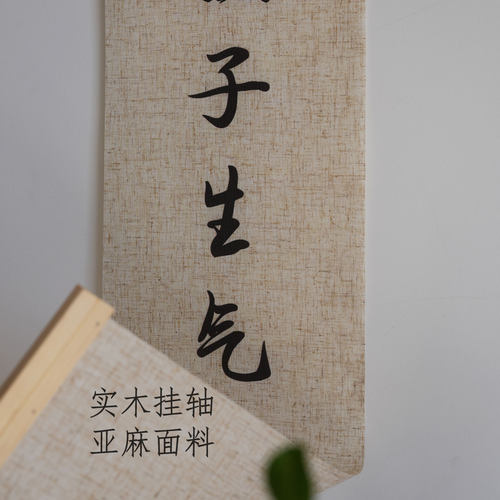 子生气
实木挂轴
亚麻面料